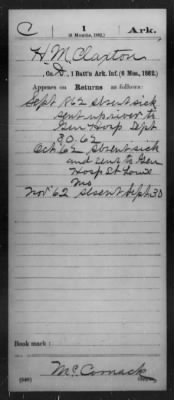 C 1 Ark.
(6 Months, 1862.)
H. M. Claxton
, Co. D, 1 Batt'n Ark. Inf. (6 Mos., 1862.)
Appears on Returns as follows:
Sept 1862 absent sick
sent up river to
Gen Hosp Sept
30.62
Oct 62 Absent sick
and sent to Gen
Hosp St Louis
Mo
Nov 62 Absent Sept 30
Book mark:
McCornack
(546)